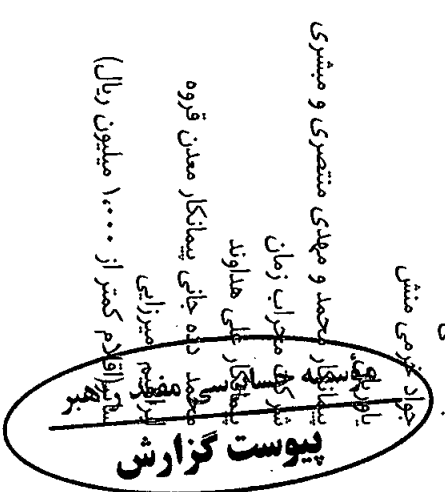 جواد خرمی منش
پیمانکار محمد و مهدی منتصری و مبشری
شرکت محراب زمان
پیمانکار علی هداوند
محمد دده جانی پیمانکار معدن قروه
ابراهیم میرزایی
سایر(اقلام کمتر از ۱,۰۰۰ میلیون ریال)
موسسه حسابرسی مفید راهبر
پیوست گزارش